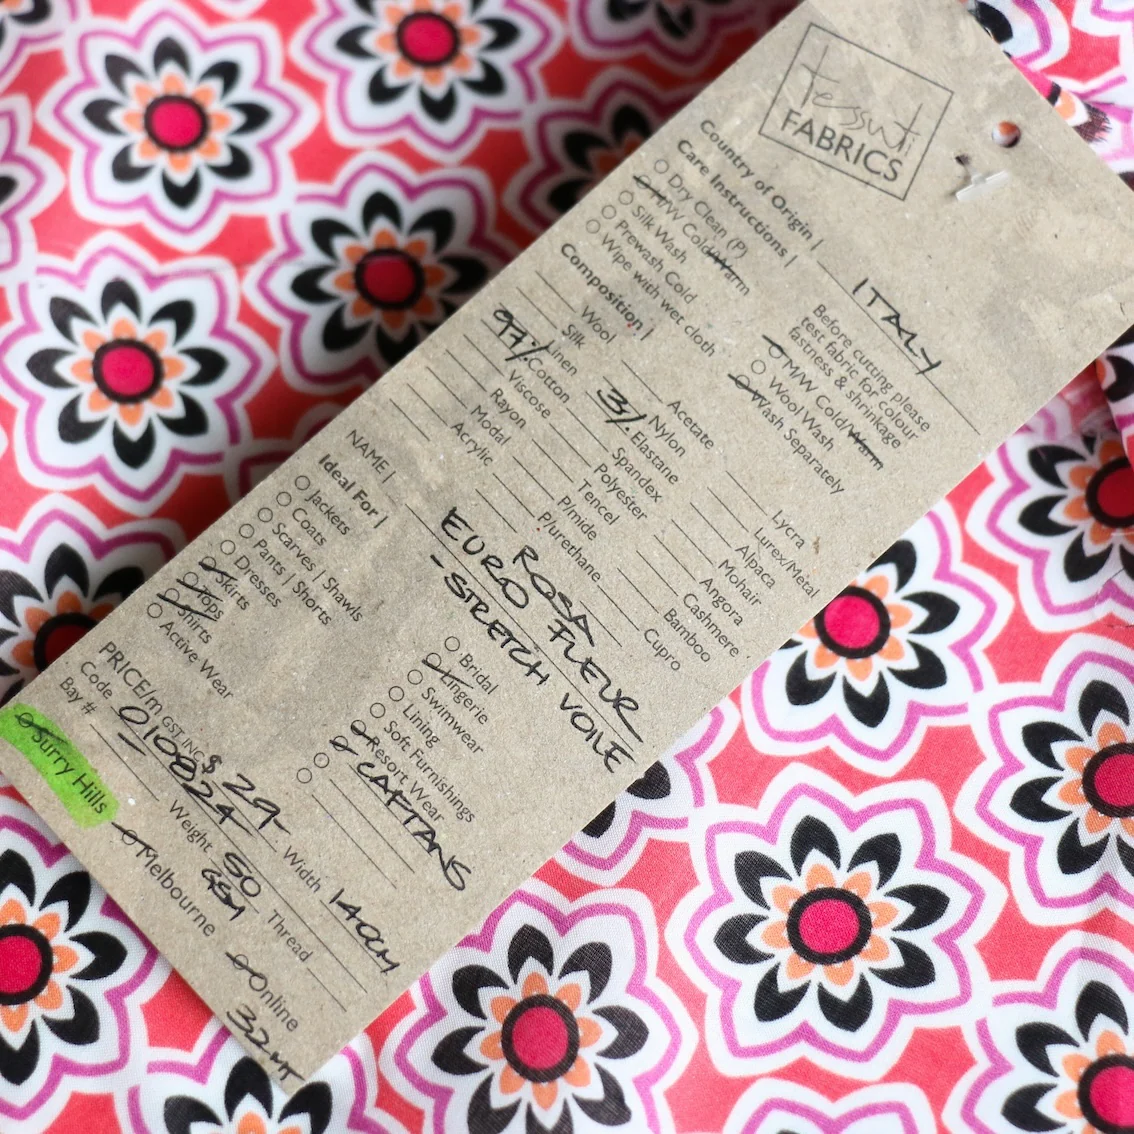 tessuti
FABRICS
Country of Origin | ITALY
Care Instructions |
Dry Clean (P)
H/W Cold/Warm
Silk Wash
Prewash Cold
Wipe with wet cloth
Before cutting please
test fabric for colour
fastness & shrinkage
M/W Cold/Warm
Wool Wash
Wash Separately
Composition |
Wool
Silk
Linen
97% Cotton
Viscose
Rayon
Modal
Acrylic
Acetate
Nylon
3% Elastane
Spandex
Polyester
Tencel
P/mide
P/urethane
Lycra
Lurex/Metal
Alpaca
Mohair
Angora
Cashmere
Bamboo
Cupro
NAME | ROSA
EURO FLEUR
- STRETCH VOILE
Ideal For |
Jackets
Coats
Scarves | Shawls
Pants | Shorts
Dresses
Skirts
Tops
Shirts
Active Wear
Bridal
Lingerie
Swimwear
Lining
Soft Furnishings
Resort Wear
CAFTANS
PRICE/m GST INC $ 29-
Code 010824
Width 140cm
Bay #
Weight 50
GSM
Thread
Surry Hills
Melbourne
Online
32mt